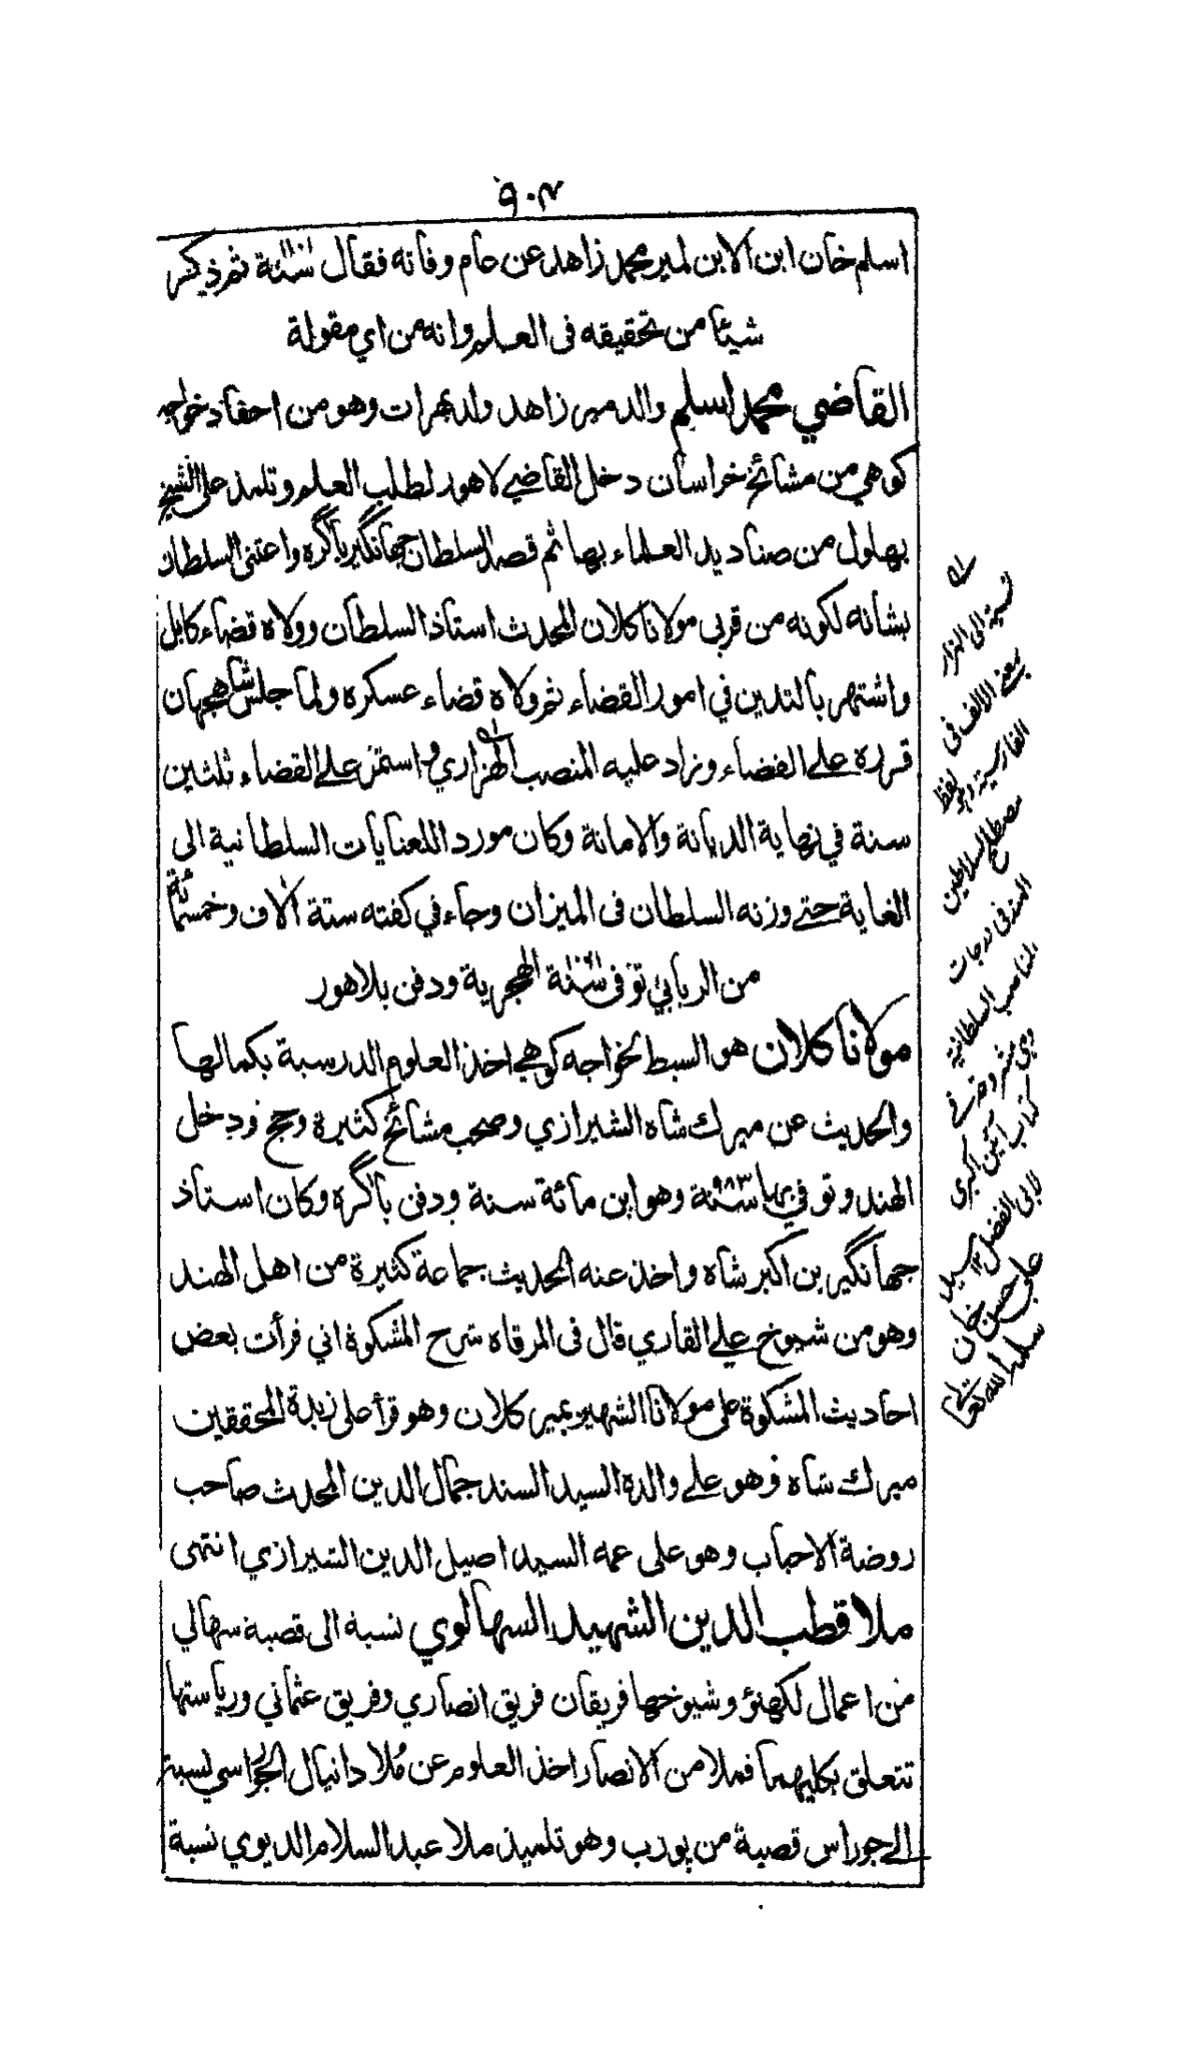 ٩٠٣
اسلم خان ابن الابن لمير محمد زاهد عن عام وفاته فقال سنة ثم ذكر
شيئا من تحقيقه فى العلم وانه من اي مقولة
القاضي محمد اسلم والد مير زاهد ولد بهرات وهو من احفاد خواجه
كوهي من مشائخ خراسان دخل القاضي لاهور لطلب العلم وتلمذ على الشيخ
بهلول من صناديد العلماء بها ثم قصد السلطان جهانگير باگره واعتنى السلطان
بشانه لكونه من قربى مولانا كلان المحدث استاذ السلطان وولاه قضاء كابل
واشتهر بالتدين في امور القضاء ثم ولاه قضاء عسكره ولما جلس شاهجهان
قرره على القضاء وزاد عليه المنصب الهزاري واستمر على القضاء ثلثين
سنة في نهاية الديانة والامانة وكان مورد اللعنايات السلطانية الى
الغاية حتى وزنه السلطان فى الميزان وجاء في كفته ستة الاف وخمسمائة
من الربابي توفى سنة الهجرية ودفن بلاهور
مولانا كلان هو السبط لخواجه كوهي اخذ العلوم الدرسية بكمالها
والحديث عن ميرك شاه الشيرازي وصحب مشائخ كثيرة وحج ودخل
الهند وتوفي بها سنة ٩٨٣ وهو ابن مائة سنة ودفن باگره وكان استاذ
جهانگير بن اكبر شاه واخذ عنه الحديث جماعة كثيرة من اهل الهند
وهو من شيوخ علي القاري قال فى المرقاه شرح المشكوة اني قرأت بعض
احاديث المشكوة على مولانا الشهير بمير كلان وهو قرأ على زبدة المحققين
ميرك شاه وهو على والده السيد السند جمال الدين المحدث صاحب
روضة الاحباب وهو على عمه السيد اصيل الدين الشيرازي انتهى
ملا قطب الدين الشهيد السهالوي نسبة الى قصبة سهالي
من اعمال لكهنؤ وشيوخها فريقان فريق انصاري وفريق عثماني ورياستها
تتعلق بكليهما فملا من الانصار اخذ العلوم عن ملا دانيال الجوراسي نسبة
الى جوراس قصبة من پورب وهو تلميذ ملا عبد السلام الديوي نسبة
نسبة الى الهزار
بمعنى الالف فى
الفارسية وهو لفظ
مصطلح السلاطين
الهند فى درجات
المناصب السلطانية
وهي مشروحة في
كتاب آئين اكبري
لابي الفضل ١٢ سيد
علي حسن خان
سلمه الله تعالى